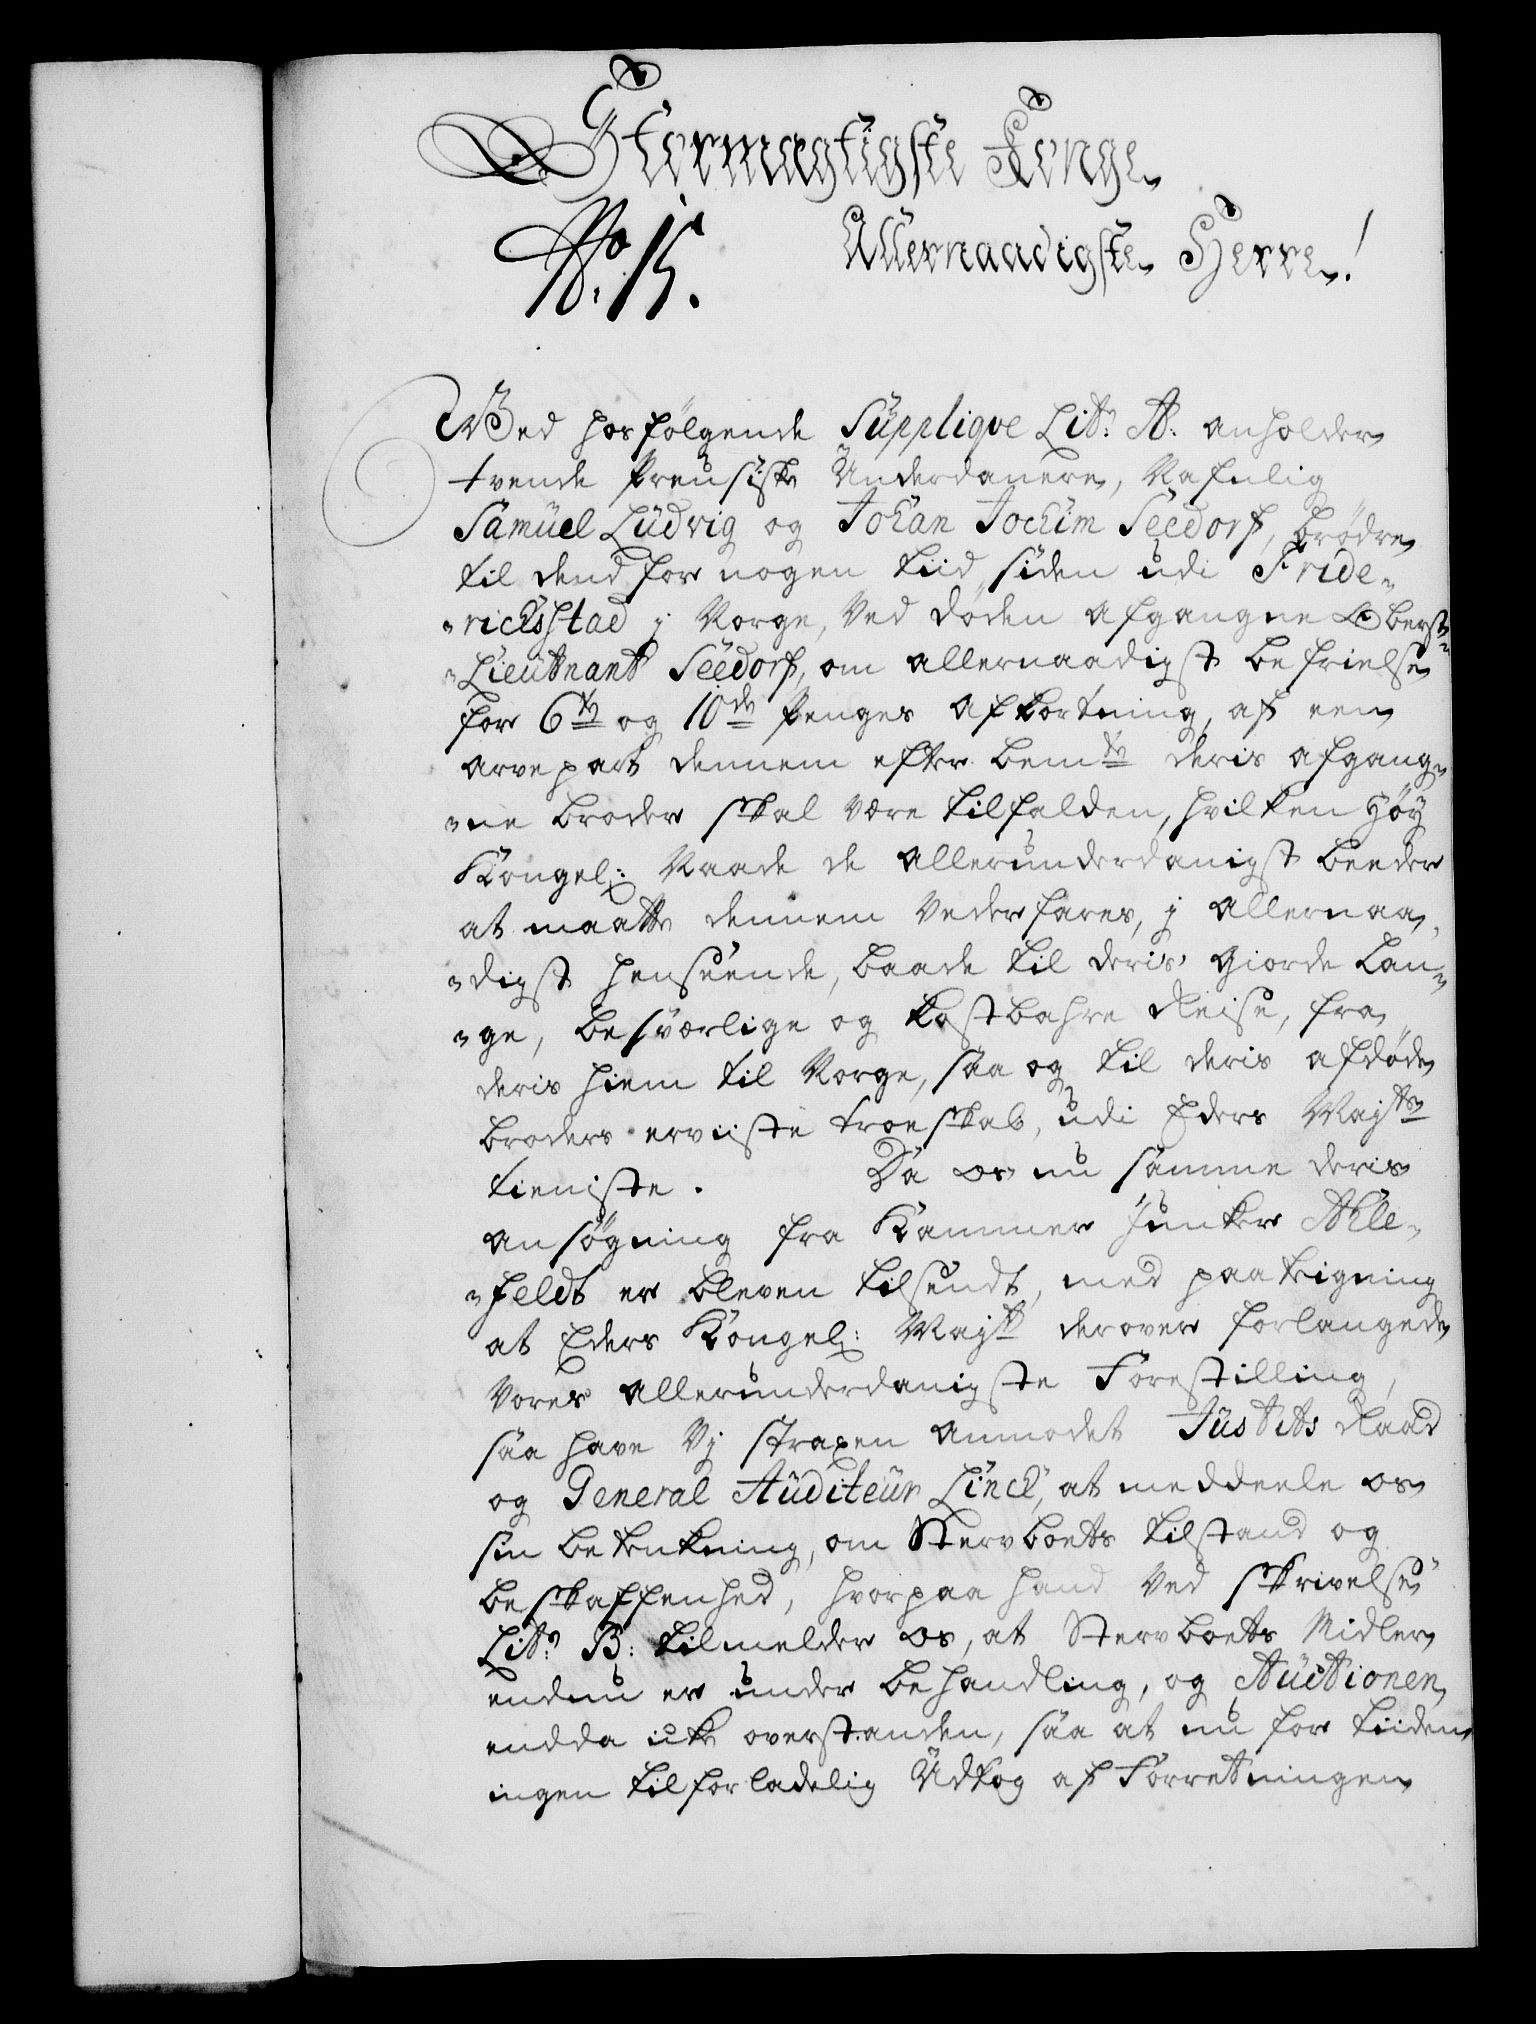 Stormægtigste Konge
Allernaadigste Herre!
No. 15.
Ved hosfölgende Supplique Litr: A: anholder
tvende Preusiske Underdanere, Nafnlig
Samuel Ludvig og Johan Jochim Seedorf, brödre
til dend for nogen tiid siden udi Fride-
-richsstad j Norge, ved döden afgangne Oberst-
-Lieutnant Seedorf, om allernaadigst befrielse
for 6te og 10de Penges afkortning, af een
arvepart dennem efter bemte deris afgang-
-ne broder skal være tilfalden, hvilken Höy
Kongel: Naade de allerunderdanigst beeder
at maatte dennem vederfares, j allernaa-
-digst henseende, baade til deris giorde lan-
-ge, besværlige og kostbahre Reise, fra
deris hiem til Norge, saa og til deris afdöde
broders erviiste troeskab, udi Eders Mayts
tieniste. Da os nu samme deris
ansögning fra Kammer Junker Ahle-
-feldt er bleven tilsendt, med paateigning
at Eders Kongel: Mayt derover forlangede
vores allerunderdanigste Forestilling,
saa have vj straxen anmodet Justits Raad
og General Auditeur Linch, at meddeele os
sin betenkning, om Stervboets tilstand og
beskaffenhed, hvorpaa hand ved skrivelse
Litr B: tilmelder os, at Stervboets Midler
endnu er under behandling, og Auctionen
endda icke overstanden, saa at nu for tiiden
ingen tilforladelig Udtog af Forretningen